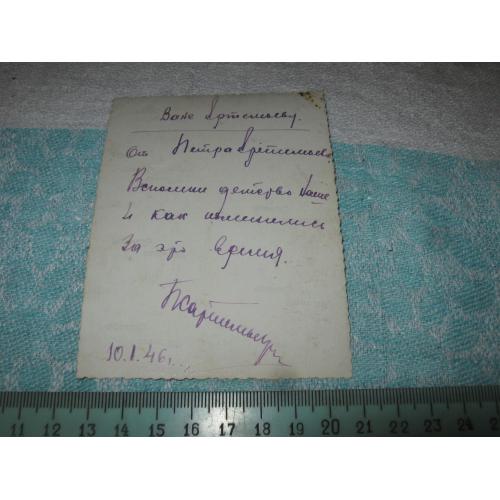 Ване Артемьеву.
От Петра Артемьева
Вспомни детство Наше
и как изменились
За это время.
10.1.46г.
11 12 13 14 15 16 17 18 19 20 21 22 23 24